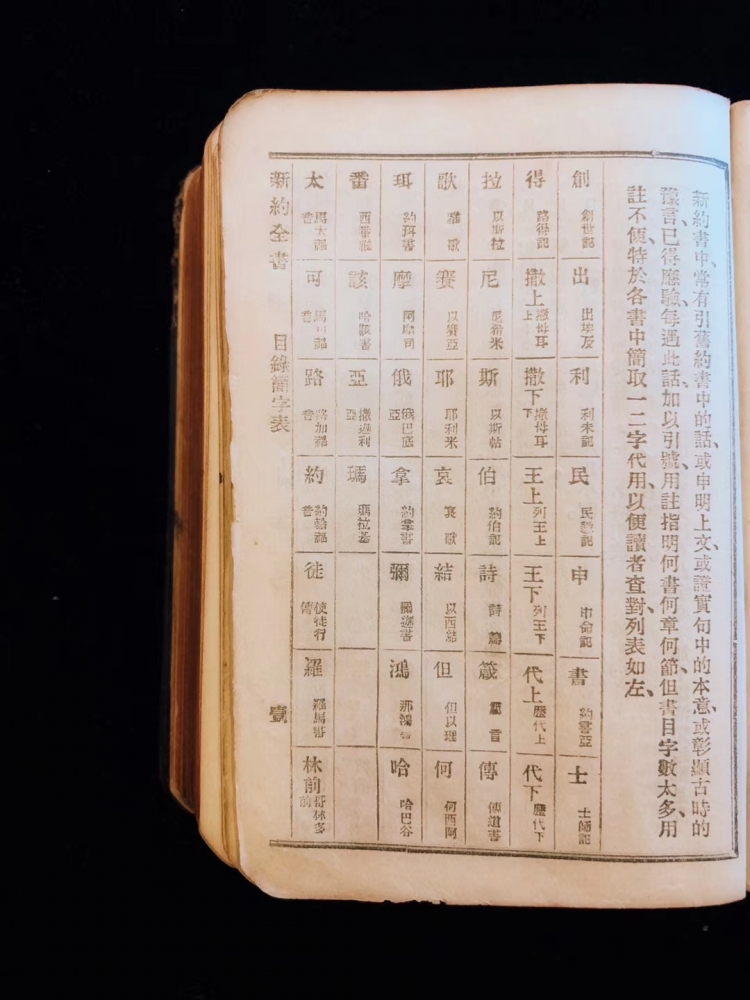 新約書中、常有引舊約書中的話、或申明上文、或證實句中的本意、或彰顯古時的
豫言、已得應驗、每遇此話、加以引號、用註指明何書何章何節、但書目字數太多、用
註不便、特於各書中簡取一二字代用、以便讀者查對、列表如左、
創 創世記 出 出埃及 利 利未記 民 民數記 申 申命記 書 約書亞 士 士師記
得 路得記 撒上 撒母耳上 撒下 撒母耳下 王上 列王上 王下 列王下 代上 歷代上 代下 歷代下
拉 以斯拉 尼 尼希米 斯 以斯帖 伯 約伯記 詩 詩篇 箴 箴言 傳 傳道書
歌 雅歌 賽 以賽亞 耶 耶利米 哀 哀歌 結 以西結 但 但以理 何 何西阿
珥 約珥書 摩 阿摩司 俄 俄巴底亞 拿 約拿書 彌 彌迦書 鴻 那鴻書 哈 哈巴谷
番 西番雅 該 哈該書 亞 撒迦利亞 瑪 瑪拉基
太 馬太福音 可 馬可福音 路 路加福音 約 約翰福音 徒 使徒行傳 羅 羅馬書 林前 哥林多前
新約全書 目錄簡字表 壹